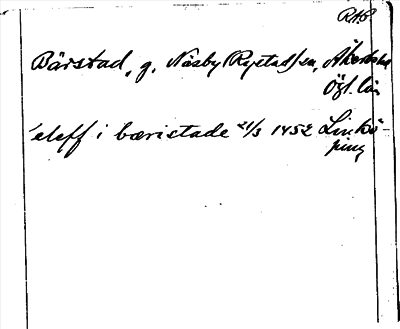 RAP.
Bärstad, g. Näsby (Rystad) sn, Åkerbo hd
Ögl. län
'eleff i bæristade 21/3 1452 Linkö-
ping